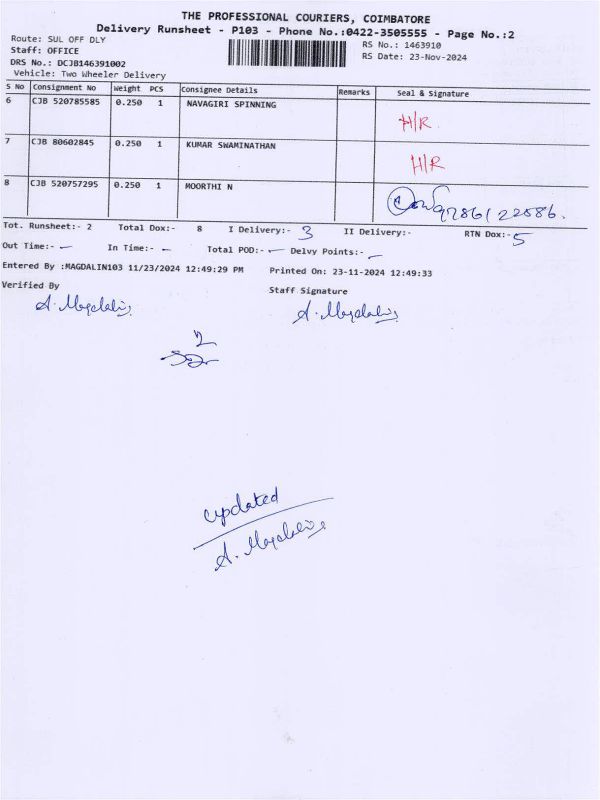 THE PROFESSIONAL COURIERS, COIMBATORE
Delivery Runsheet - P103 - Phone No.:0422-3505555 - Page No.:2
Route: SUL OFF DLY RS No.: 1463910
Staff: OFFICE RS Date: 23-Nov-2024
DRS No.: DCJB146391002
Vehicle: Two Wheeler Delivery
S No Consignment No Weight PCS Consignee Details Remarks Seal & Signature
6 CJB 520785585 0.250 1 NAVAGIRI SPINNING H/R
7 CJB 80602845 0.250 1 KUMAR SWAMINATHAN H/R
8 CJB 520757295 0.250 1 MOORTHI N
Tot. Runsheet:- 2 Total Dox:- 8 I Delivery:- 3 II Delivery:- RTN Dox:- 5
Out Time:- — In Time:- — Total POD:- — Delvy Points:- —
Entered By :MAGDALIN103 11/23/2024 12:49:29 PM Printed On: 23-11-2024 12:49:33
Verified By Staff Signature
A. Magdalin A. Magdalin
updated
A. Magdalin